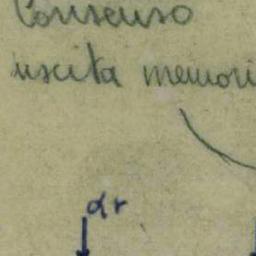 Consenso
uscita memori
dr